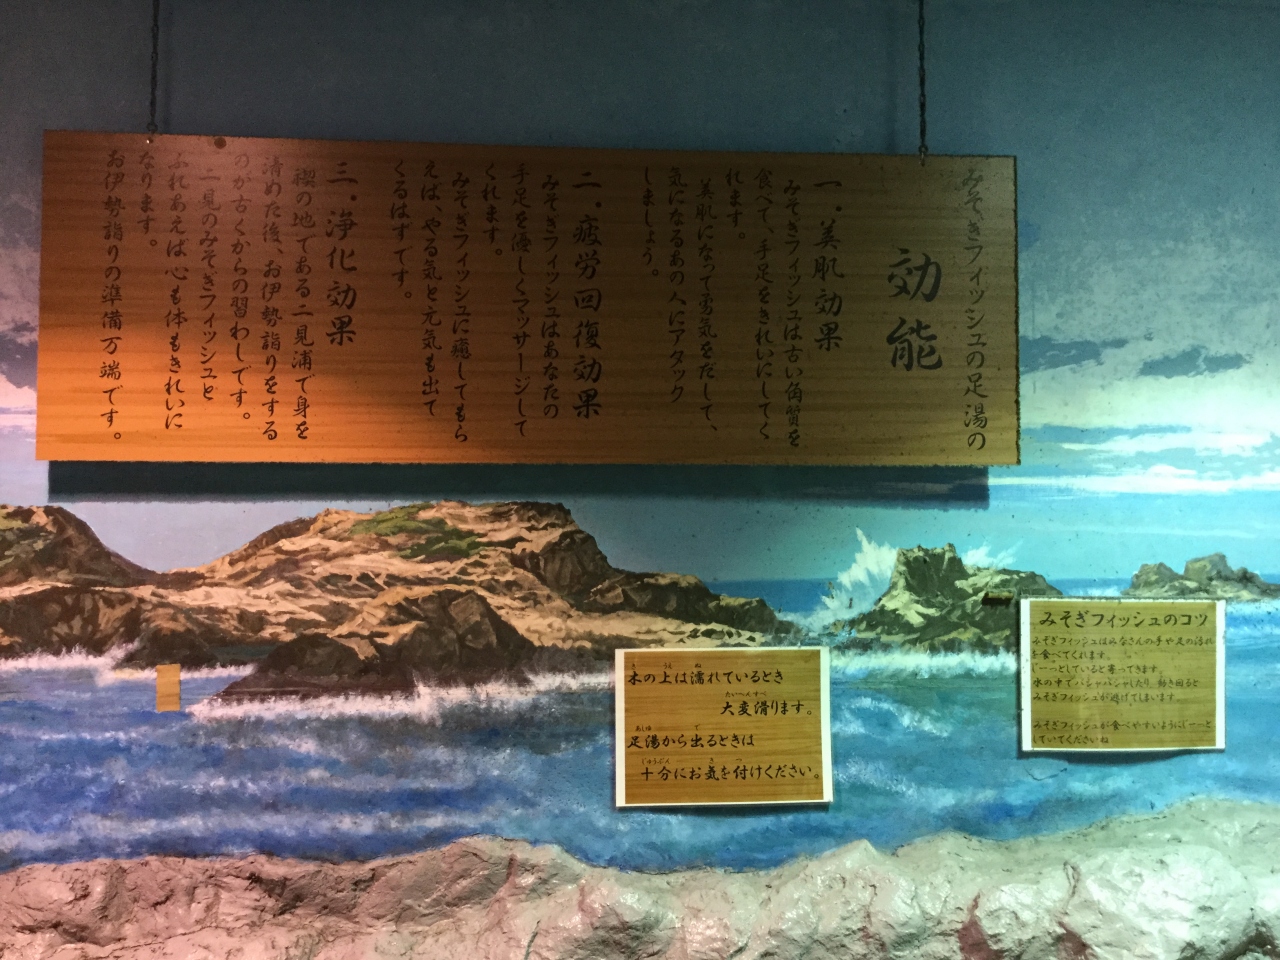 みそぎフィッシュの足湯の
効能
一．美肌効果
みそぎフィッシュは古い角質を
食べて、手足をきれいにしてく
れます。
美肌になって勇気をだして、
気になるあの人にアタック
しましょう。
二．疲労回復効果
みそぎフィッシュはあなたの
手足を優しくマッサージして
くれます。
みそぎフィッシュに癒してもら
えば、やる気と元気も出て
くるはずです。
三．浄化効果
禊の地である二見浦で身を
清めた後、お伊勢詣りをする
のが古くからの習わしです。
二見のみそぎフィッシュと
ふれあえば心も体もきれいに
なります。
お伊勢詣りの準備万端です。
木の上は濡れているとき
大変滑ります。
足湯から出るときは
十分にお気を付けください。
みそぎフィッシュのコツ
みそぎフィッシュはみなさんの手や足の汚れ
を食べてくれます。
じーっとしていると寄ってきます。
水の中でバシャバシャしたり、動き回ると
みそぎフィッシュが逃げてしまいます
みそぎフィッシュが食べやすいようにじーっと
していてくださいね